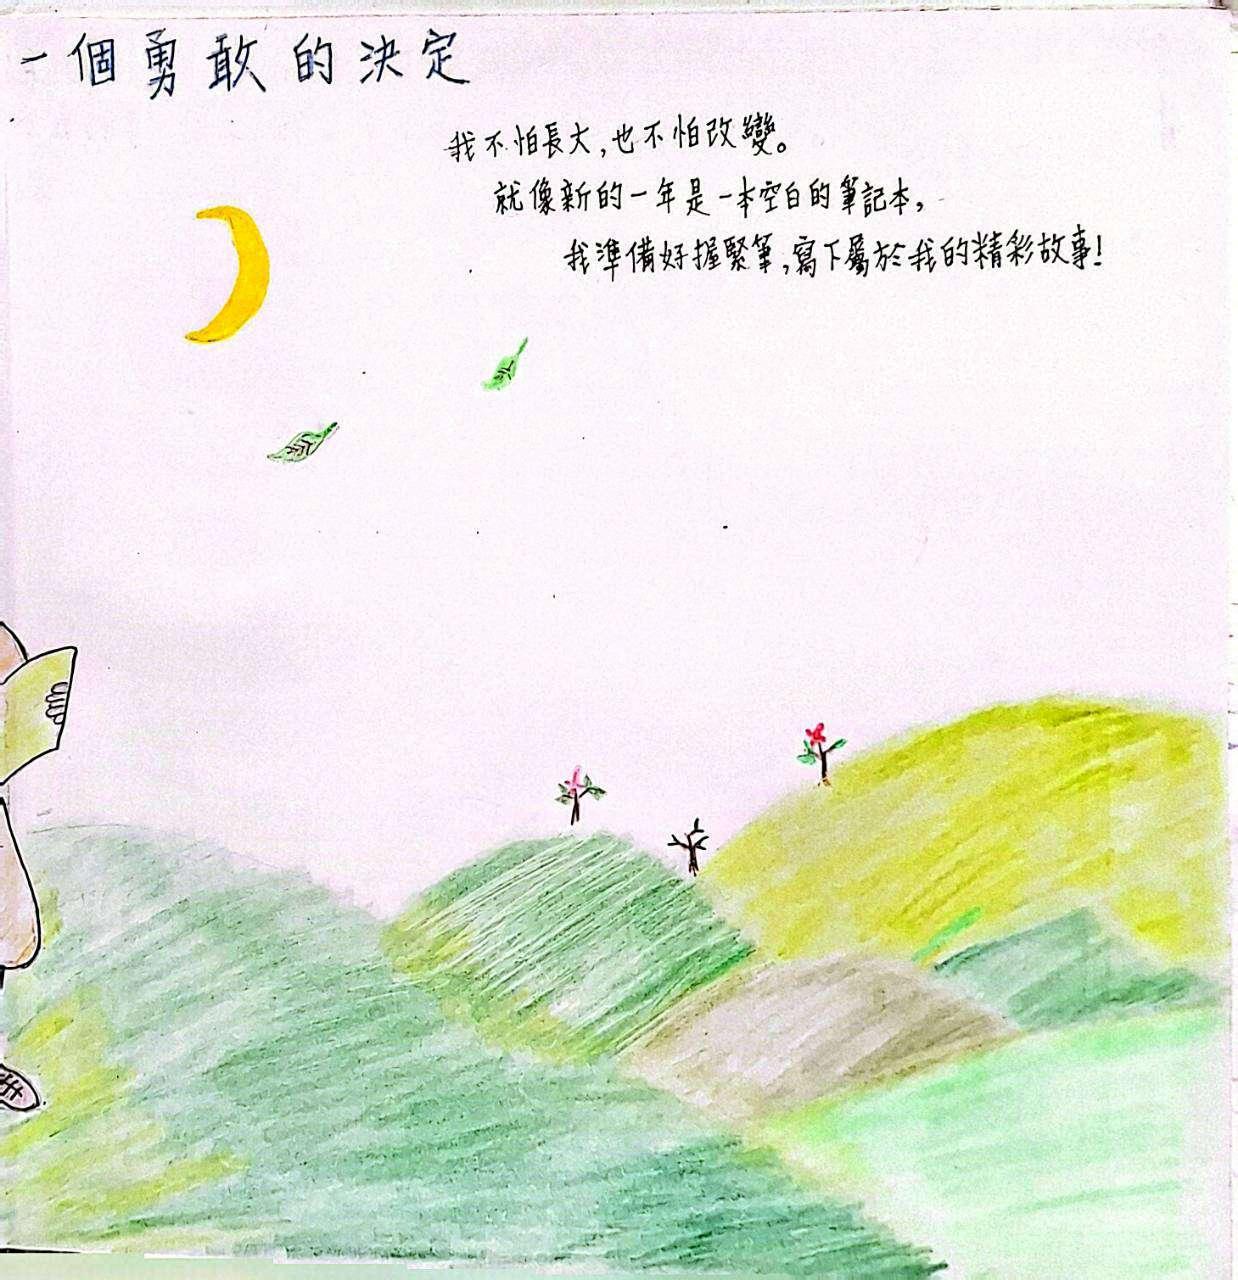 一個勇敢的決定
我不怕長大,也不怕改變。
就像新的一年是一本空白的筆記本,
我準備好握緊筆,寫下屬於我的精彩故事!